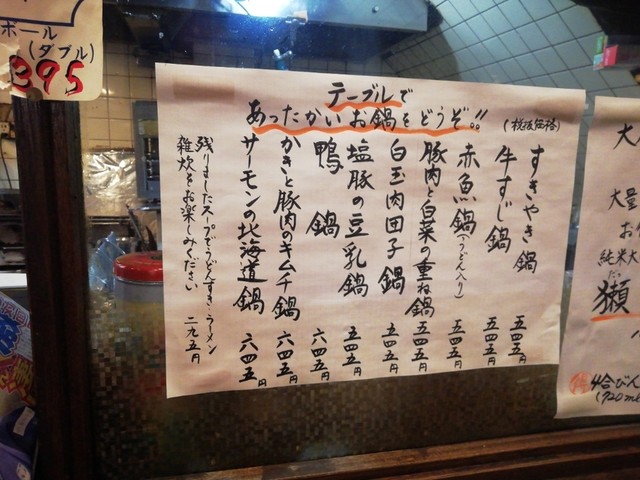 ボール
(ダブル)
395
テーブルで
あったかいお鍋をどうぞ!!
(税抜価格)
すきやき鍋 五四五円
牛すじ鍋 五四五円
赤魚鍋(うどん入り) 五四五円
豚肉と白菜の重ね鍋 五四五円
白玉肉団子鍋 五四五円
塩豚の豆乳鍋 五四五円
鴨鍋 六四五円
かきと豚肉のキムチ鍋 六四五円
サーモンの北海道鍋 六四五円
残りましたスープでうどんすき・ラーメン
雑炊をお楽しみください 二九五円
大量
お
純米大
獺
4合びん
(720mℓ